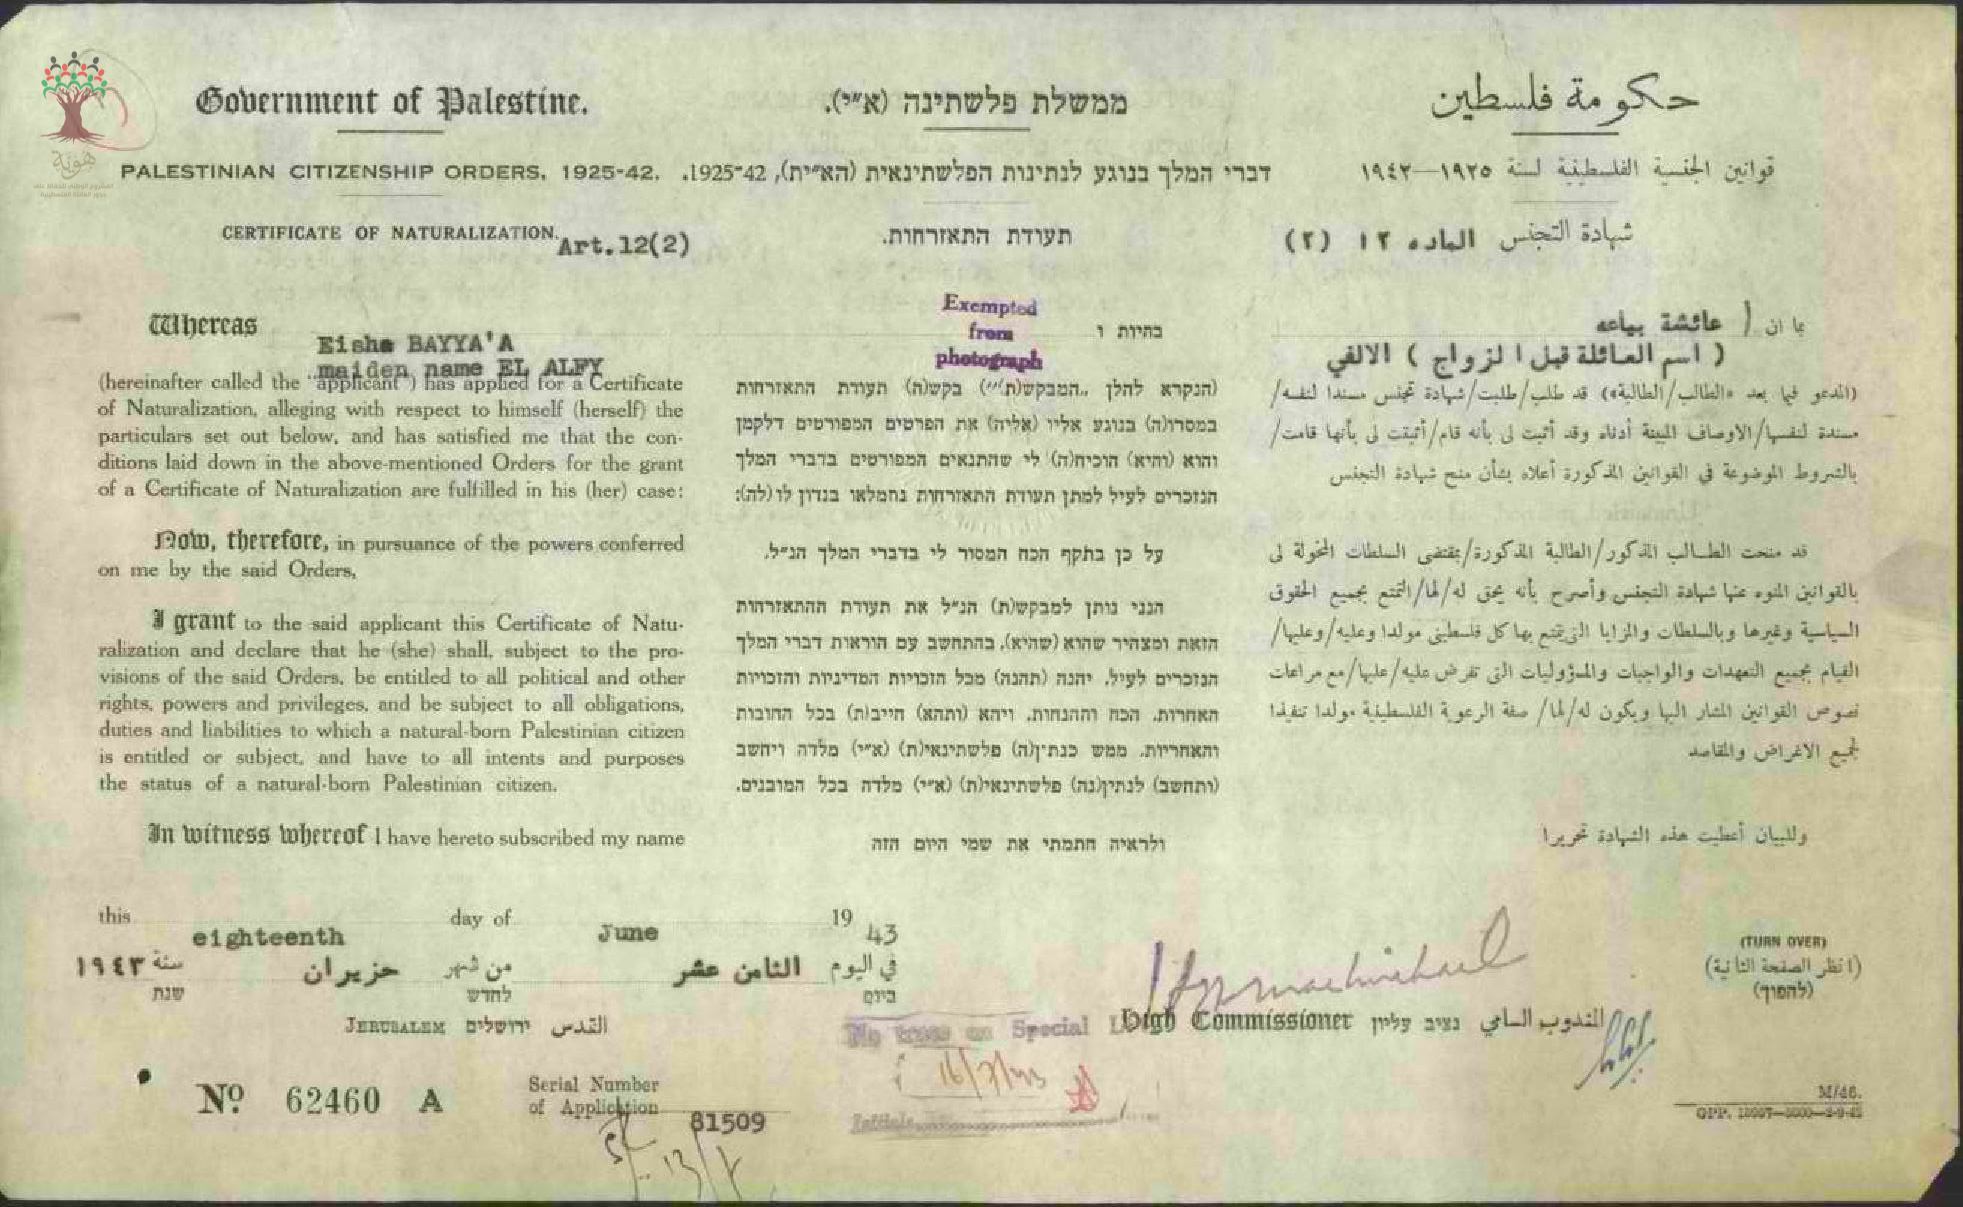 هوية
Government of Palestine.
ממשלת פלשתינה (א״י).
حكومة فلسطين
PALESTINIAN CITIZENSHIP ORDERS, 1925-42.
דברי המלך בנוגע לנתינות הפלשתינאית (הא״ית), 1925-42.
قوانين الجنسية الفلسطينية لسنة ١٩٢٥—١٩٤٢
CERTIFICATE OF NATURALIZATION. Art.12(2)
תעודת התאזרחות.
شهادة التجنس الماده ١٢ (٢)
Whereas
Eisha BAYYA'A
maiden name EL ALFY
(hereinafter called the "applicant") has applied for a Certificate
of Naturalization, alleging with respect to himself (herself) the
particulars set out below, and has satisfied me that the con-
ditions laid down in the above-mentioned Orders for the grant
of a Certificate of Naturalization are fulfilled in his (her) case:
Now, therefore, in pursuance of the powers conferred
on me by the said Orders,
I grant to the said applicant this Certificate of Natu-
ralization and declare that he (she) shall, subject to the pro-
visions of the said Orders, be entitled to all political and other
rights, powers and privileges, and be subject to all obligations,
duties and liabilities to which a natural-born Palestinian citizen
is entitled or subject, and have to all intents and purposes
the status of a natural-born Palestinian citizen.
In witness whereof I have hereto subscribed my name
Exempted
from
photograph
בהיות ו
(הנקרא להלן ,,המבקש(ת)״) בקש(ה) תעודת התאזרחות
במסרו(ה) בנוגע אליו (אליה) את הפרטים המפורטים דלקמן
והוא (והיא) הוכיח(ה) לי שהתנאים המפורטים בדברי המלך
הנזכרים לעיל למתן תעודת התאזרחות נתמלאו בנדון לו (לה):
על כן בתקף הכח המסור לי בדברי המלך הנ״ל,
הנני נותן למבקש(ת) הנ״ל את תעודת ההתאזרחות
הזאת ומצהיר שהוא (שהיא), בהתחשב עם הוראות דברי המלך
הנזכרים לעיל, יהנה (תהנה) מכל הזכויות המדיניות והזכויות
האחרות, הכח וההנחות, ויהא (ותהא) חייב(ת) בכל החובות
והאחריות, ממש כנתין(ה) פלשתינאי(ת) (א״י) מלדה ויחשב
(ותחשב) לנתין(נה) פלשתינאי(ת) (א״י) מלדה בכל המובנים.
ולראיה חתמתי את שמי היום הזה
بما ان / عائشة بياعه
( اسم العائلة قبل الزواج ) الالفي
(المدعو فيما بعد «الطالب/الطالبة») قد طلب/طلبت/شهادة تجنس مسندا لنفسه/
مسندة لنفسها/الاوصاف المبينة أدناه وقد أثبت لي بأنه قام/أثبتت لي بأنها قامت/
بالشروط الموضوعة في القوانين المذكورة أعلاه بشأن منح شهادة التجنس
قد منحت الطالب المذكور/الطالبة المذكورة/بمقتضى السلطات المخولة لي
بالقوانين المنوه عنها شهادة التجنس وأصرح بأنه يحق له/لها/التمتع بجميع الحقوق
السياسية وغيرها وبالسلطات والمزايا التي يتمتع بها كل فلسطيني مولدا وعليه/وعليها/
القيام بجميع التعهدات والواجبات والمسؤوليات التي تفرض عليه/عليها/مع مراعات
نصوص القوانين المشار اليها ويكون له/لها/ صفة الرعوية الفلسطينية مولدا تنفيذا
لجميع الاغراض والمقاصد
وللبيان أعطيت هذه الشهادة تحريرا
this eighteenth day of June 1943
في اليوم الثامن عشر من شهر حزيران سنة ١٩٤٣
ביום לחדש שנת
JERUSALEM ירושלים القدس
High Commissioner נציב עליון المندوب السامي
(TURN OVER)
(انظر الصفحة الثانية)
(להפוך)
No trace on Special
16/7/43
Initials
No. 62460 A
Serial Number
of Application 81509
M/46.